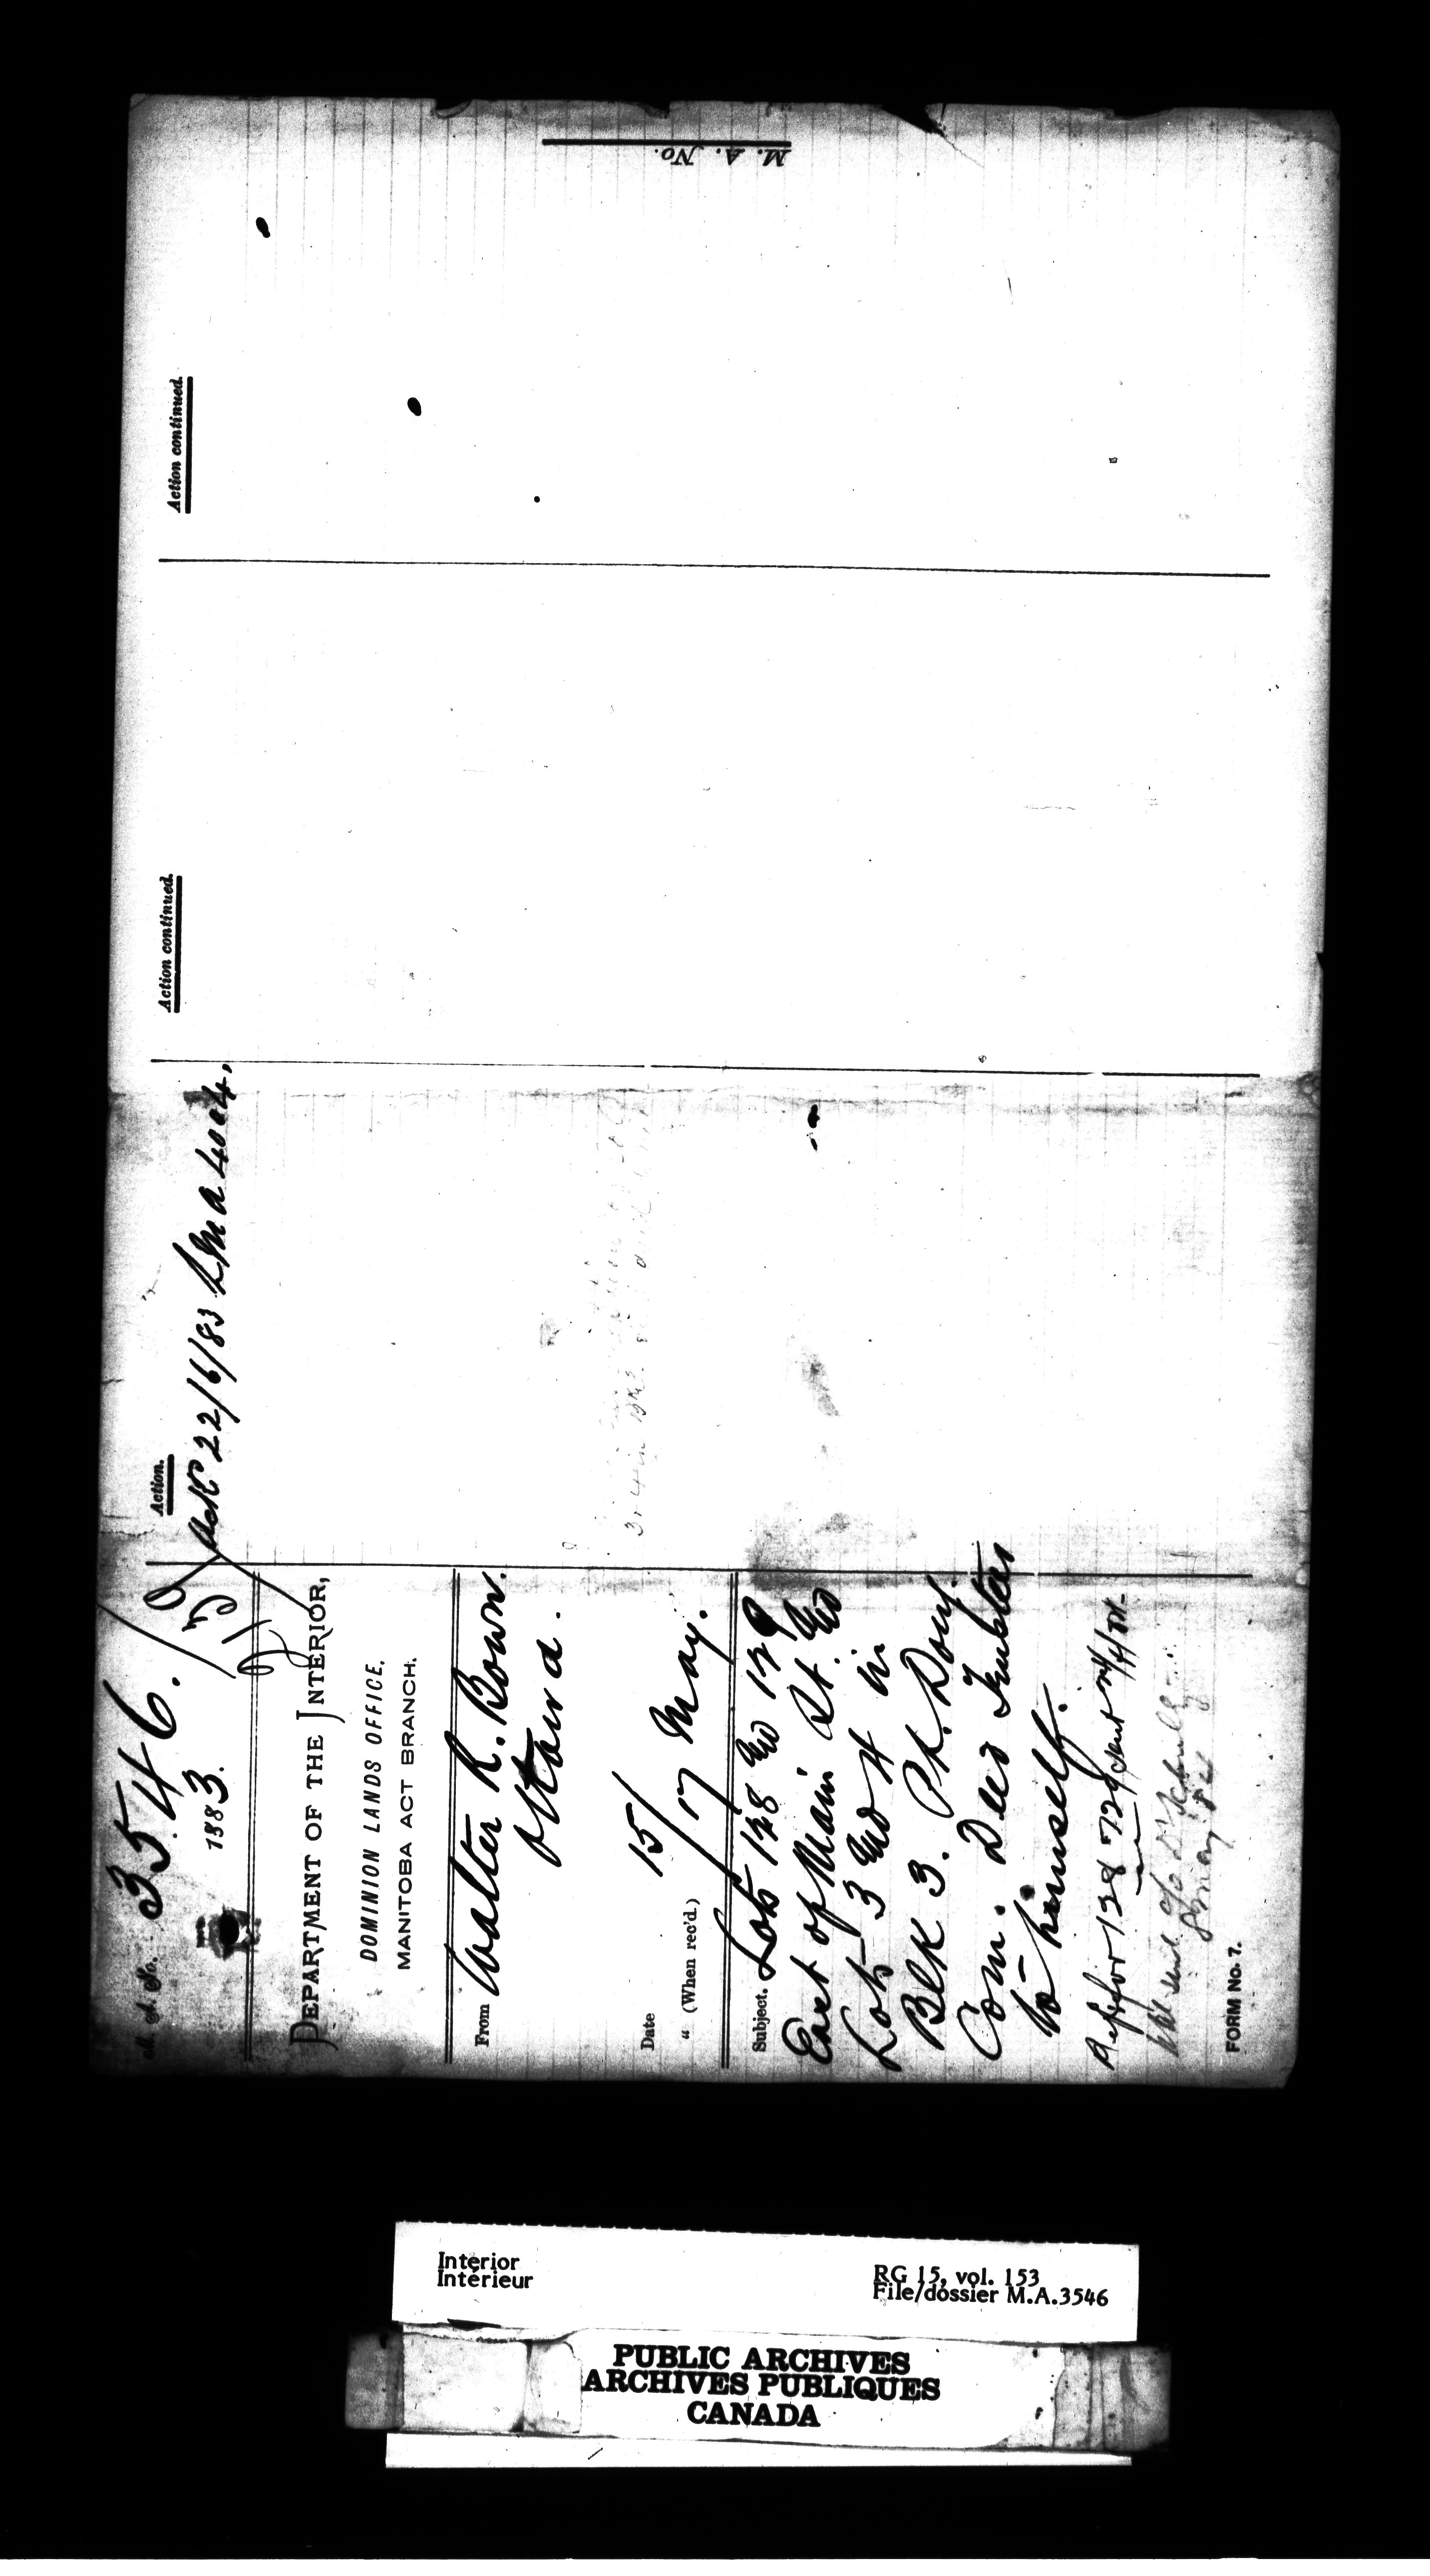 M. A. No. 3546.
1883.
DEPARTMENT OF THE INTERIOR,
DOMINION LANDS OFFICE.
MANITOBA ACT BRANCH.
From Walter R. Bown.
Ottawa.
Date 15/
" (When rec'd.) 17 May.
Subject. Lots 128 and 129
East of Main St. and
Lots 3 and 4 in
Blk 3. Pt. Doug.
Com. Deed
to himself.
FORM No. 7.
Action.
Ack 22/6/83 L M A 4004.
Action continued.
Action continued.
M. A. No.
Interior
Intérieur
RG 15, vol. 153
File/dossier M.A.3546
PUBLIC ARCHIVES
ARCHIVES PUBLIQUES
CANADA